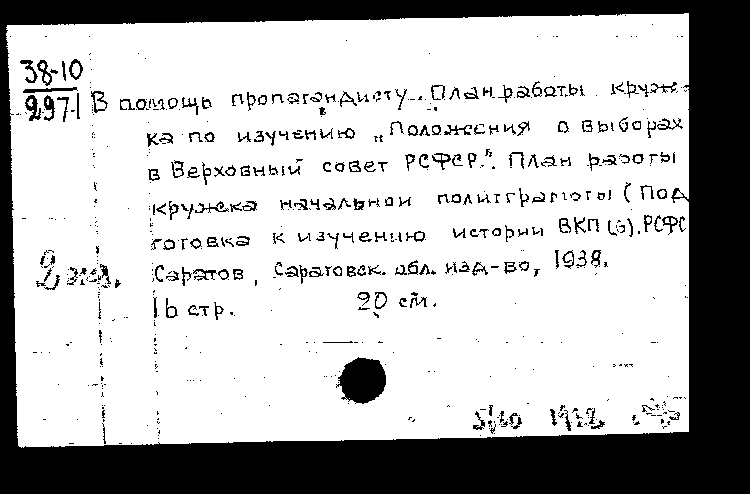 38-10
297-1
В помощь пропагандисту. План работы круж-
ка по изучению „Положения о выборах
в Верховный совет РСФСР.". План работы
кружка начальной политграмоты (Под
готовка к изучению истории ВКП(б). РСФС
2 экз. Саратов, Саратовск. обл. изд-во, 1938.
16 стр. 20 см.